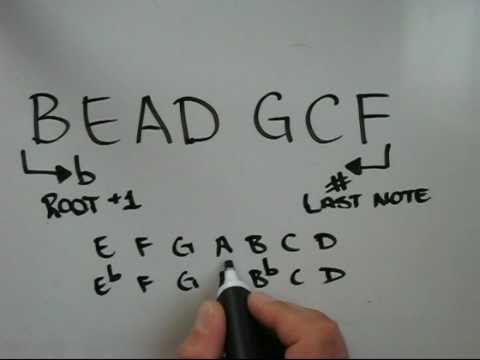 BEAD GCF
b #
ROOT +1 LAST NOTE
E F G A B C D
Eb F G Bb C D